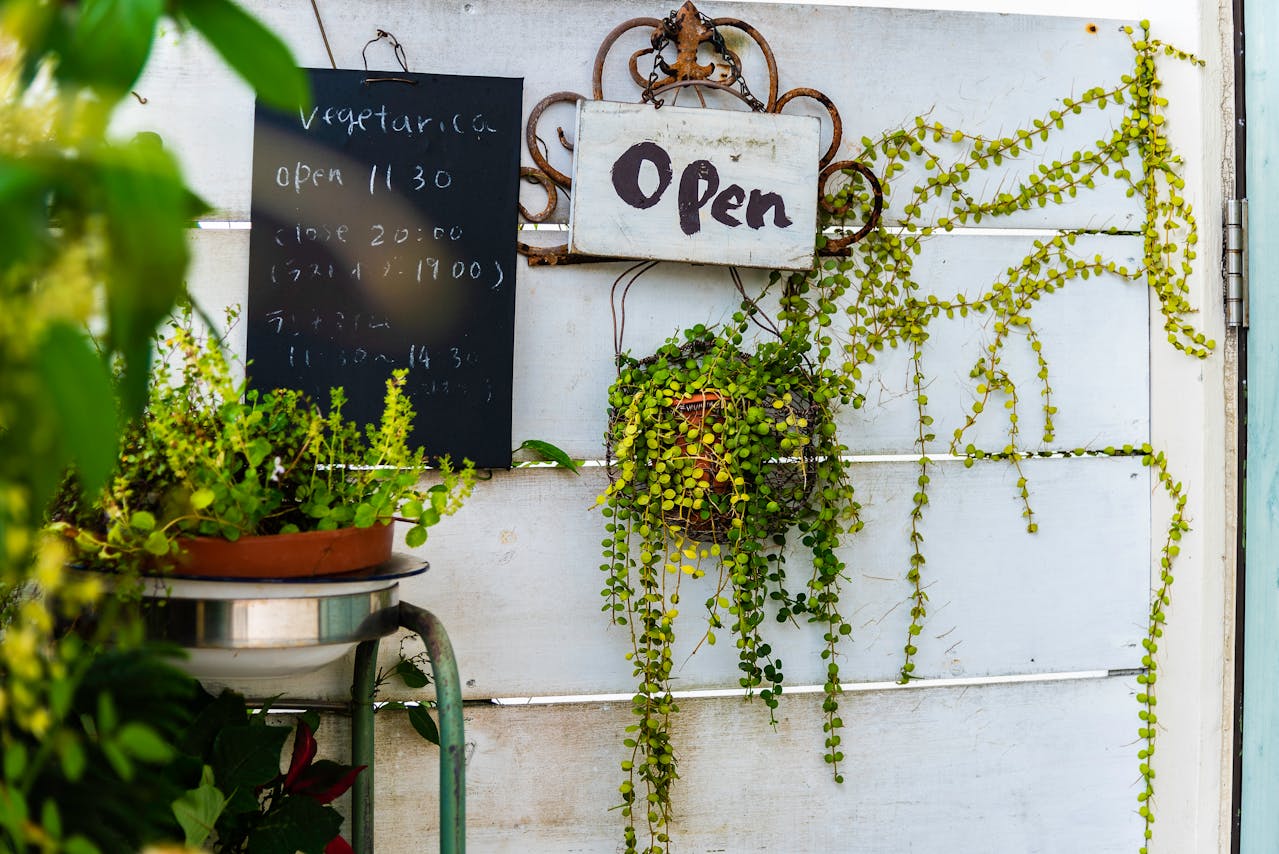 vegetarica
open 11 30
close 20:00
(ラストイン 19:00)
ランチタイム
11:30〜14:30
open